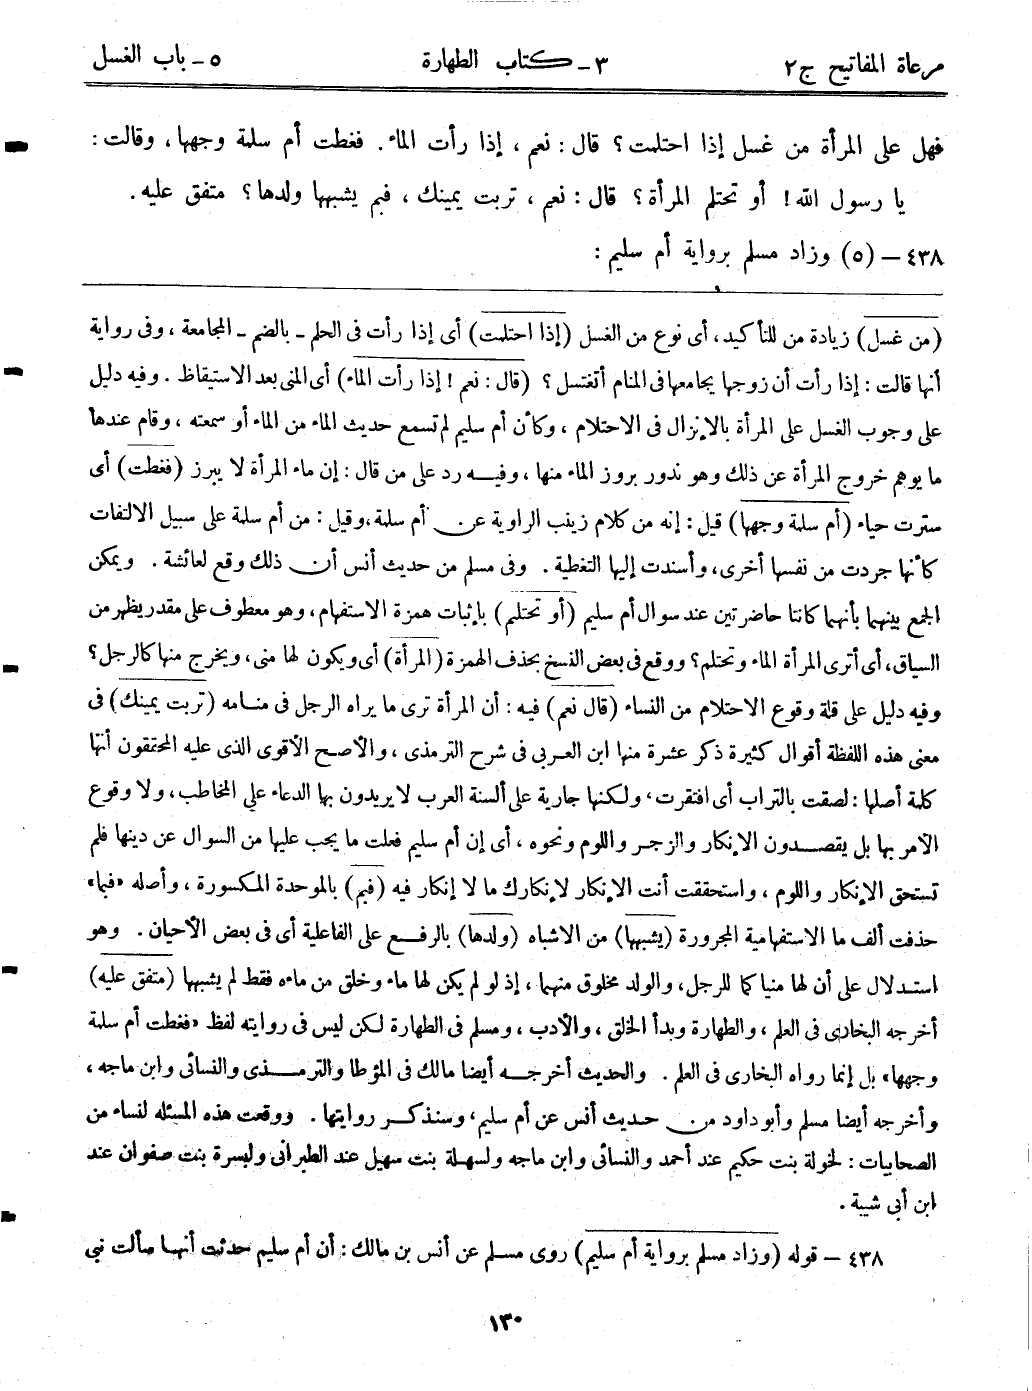 مرعاة المفاتيح ج٢ ٣- كتاب الطهارة ٥- باب الغسل
فهل على المرأة من غسل إذا احتلمت؟ قال: نعم، إذا رأت الماء. فغطت أم سلمة وجهها، وقالت:
يا رسول الله! أو تحتلم المرأة؟ قال: نعم، تربت يمينك، فبم يشبهها ولدها؟ متفق عليه.
٤٣٨ – (٥) وزاد مسلم برواية أم سليم:
(من غسل) زيادة من للتأكيد، أى نوع من الغسل (إذا احتلمت) أى إذا رأت فى الحلم - بالضم - المجامعة، وفى رواية
أنها قالت: إذا رأت أن زوجها يجامعها فى المنام أتغتسل؟ (قال: نعم! إذا رأت الماء) أى المنى بعد الاستيقاظ. وفيه دليل
على وجوب الغسل على المرأة بالإنزال فى الاحتلام، وكأن أم سليم لم تسمع حديث الماء من الماء أو سمعته، وقام عندها
ما يوهم خروج المرأة عن ذلك وهو ندور بروز الماء منها، وفيه رد على من قال: إن ماء المرأة لا يبرز (فغطت) أى
سترت حياء (أم سلمة وجهها) قيل: إنه من كلام زينب الراوية عن أم سلمة، وقيل: من أم سلمة على سبيل الالتفات
كأنها جردت من نفسها أخرى، وأسندت إليها التغطية. وفى مسلم من حديث أنس أن ذلك وقع لعائشة. ويمكن
الجمع بينهما بأنهما كانتا حاضرتين عند سوال أم سليم (أو تحتلم) بإثبات همزة الاستفهام، وهو معطوف على مقدر يظهر من
السياق، أى أترى المرأة الماء وتحتلم؟ ووقع فى بعض النسخ بحذف الهمزة (المرأة) أى ويكون لها منى، ويخرج منها كالرجل؟
وفيه دليل على قلة وقوع الاحتلام من النساء (قال نعم) فيه: أن المرأة ترى ما يراه الرجل فى منامه (تربت يمينك) فى
معنى هذه اللفظة أقوال كثيرة ذكر عشرة منها ابن العربى فى شرح الترمذى، والأصح الأقوى الذى عليه المحققون أنها
كلمة أصلها: لصقت بالتراب أى افتقرت، ولكنها جارية على ألسنة العرب لا يريدون بها الدعاء على المخاطب، ولا وقوع
الأمر بها بل يقصدون الإنكار والزجر واللوم ونحوه، أى إن أم سليم فعلت ما يجب عليها من السوال عن دينها فلم
تستحق الإنكار واللوم، واستحققت أنت الإنكار لإنكارك ما لا إنكار فيه (فبم) بالموحدة المكسورة، وأصله «فبما»
حذفت ألف ما الاستفهامية المجرورة (يشبهها) من الاشباه (ولدها) بالرفع على الفاعلية أى فى بعض الأحيان. وهو
استدلال على أن لها منيا كما للرجل، والولد مخلوق منهما، إذ لو لم يكن لها ماء وخلق من ماءه فقط لم يشبهها (متفق عليه)
أخرجه البخارى فى العلم، والطهارة وبدأ الخلق، والأدب، ومسلم فى الطهارة لكن ليس فى روايته لفظ «فغطت أم سلمة
وجهها» بل إنما رواه البخارى فى العلم. والحديث أخرجه أيضا مالك فى المؤطا والترمذى والنسائى وابن ماجه،
وأخرجه أيضا مسلم وأبو داود من حديث أنس عن أم سليم، وسنذكر روايتها. ووقعت هذه المسئله لنساء من
الصحابيات: لخولة بنت حكيم عند أحمد والنسائى وابن ماجه ولسهلة بنت سهيل عند الطبرانى ولبسرة بنت صفوان عند
ابن أبى شيبة.
٤٣٨ – قوله (وزاد مسلم برواية أم سليم) روى مسلم عن أنس بن مالك: أن أم سليم حدثت أنها سألت نبى
١٣٠